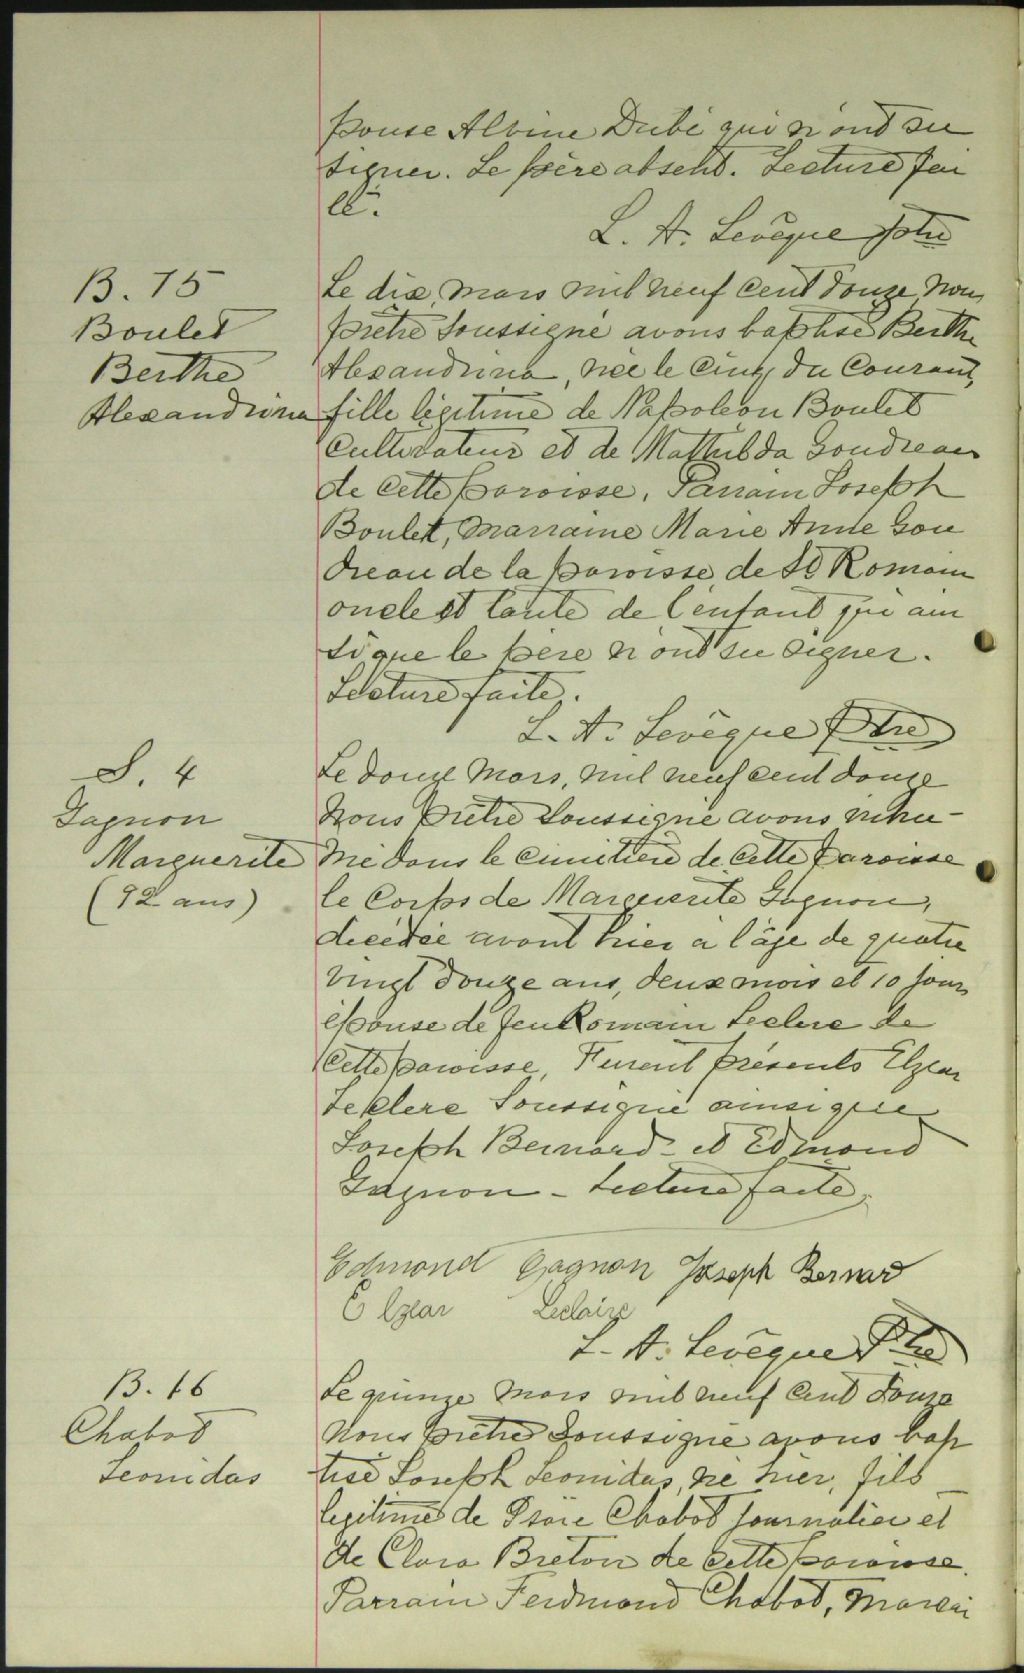 pouse Alvine Dubé qui n'ont su
signer. Le père absent. Lecture fai
te.
L. A. Levêque ptre
B. 15
Boulet
Berthe
Alexandrina
Le dix, mars mil neuf cent douze, nous
prêtre soussigné avons baptisé Berthe
Alexandrina, née le cinq du courant,
fille légitime de Napoléon Boulet
cultivateur et de Mathilda Goudreau
de cette paroisse. Parrain Joseph
Boulet, marraine Marie Anne Gou
dreau de la paroisse de St Romain
oncle et tante de l'enfant qui ain
si que le père n'ont su signer.
Lecture faite.
L. A. Levêque Ptre
S. 4
Gagnon
Marguerite
(92 ans)
Le douze mars, mil neuf cent douze
nous prêtre soussigné avons inhu-
mé dans le cimetière de cette paroisse
le corps de Marguerite Gagnon,
décédée avant hier à l'âge de quatre
vingt douze ans, deux mois et 10 jours
épouse de feu Romain Leclerc de
cette paroisse, Furent présents Elzear
Leclerc soussigné ainsi que
Joseph Bernard et Edmond
Gagnon - Lecture faite,
Edmond Gagnon Joseph Bernard
Elzear Leclaire
L. A. Levêque Ptre
B. 16
Chabot
Leonidas
Le quinze mars mil neuf cent douze
nous prêtre soussigné avons bap
tisé Joseph Leonidas, né hier, fils
legitime de Isaïe Chabot journalier et
de Clara Breton de cette paroisse.
Parrain Ferdinand Chabot, marrai